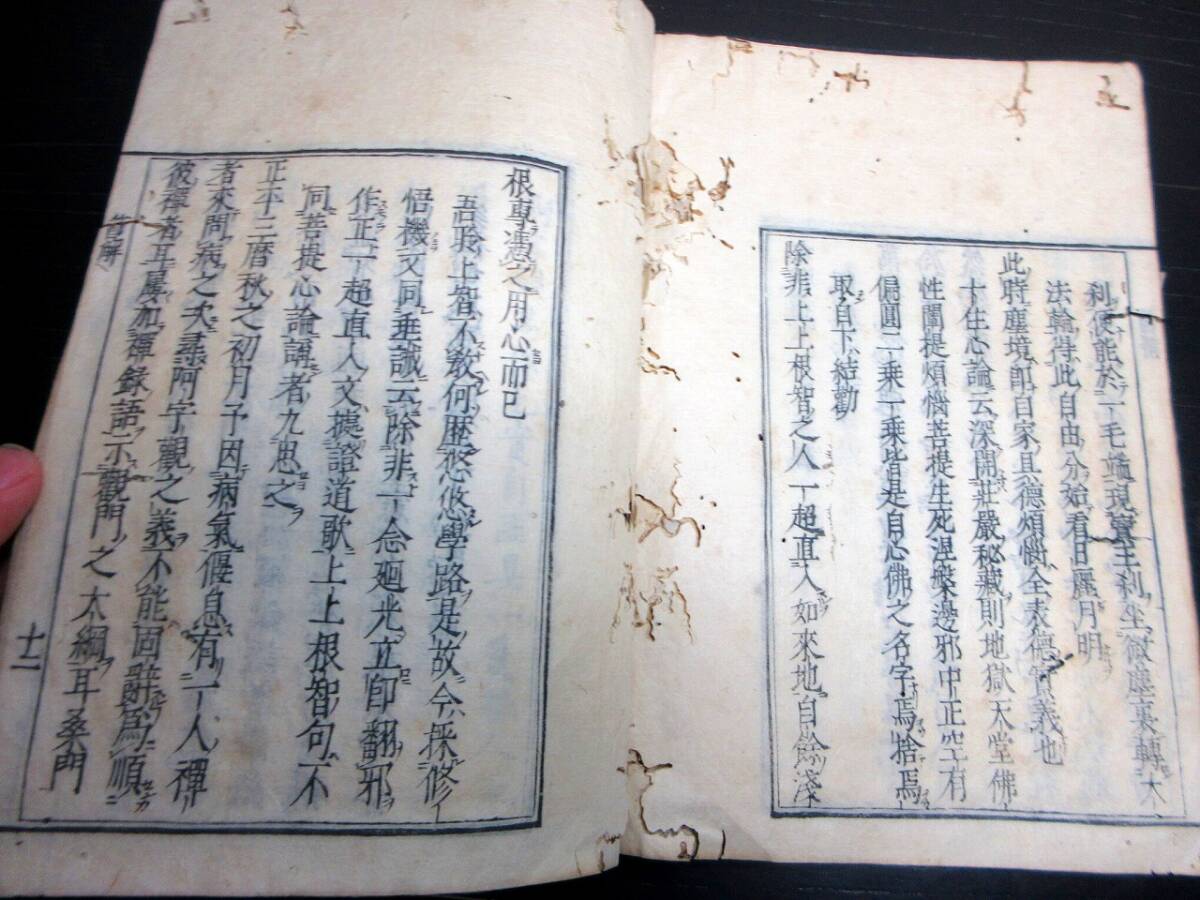 刹便能於一毛端現寳王刹坐微塵裏轉大
法輪得此自由分始看日麗月明
此時塵境卽自家具德煩惱全表德實義也
十住心論云深開莊嚴秘藏則地獄天堂佛
性闡提煩惱菩提生死涅槃邊邪中正空有
偏圓二乗一乗皆是自心佛之名字焉捨焉
取自下結勸
除非上上根智之人一超直入如來地自餘淺
根專憑之用心而已
吾聆上智不敎何歴悠悠學路是故今採修
悟機文同垂誡云除非一念廻光立卽翻邪
作正一超直入文據證道歌上上根智句不
同菩提心論講者九思之
正平三暦秋之初月予因病氣偃息有一人禪
者來問病之夭尋阿字觀之義不能固辭爲順
彼禪者耳屢加禪録語示觀門之大綱耳桑門
十二